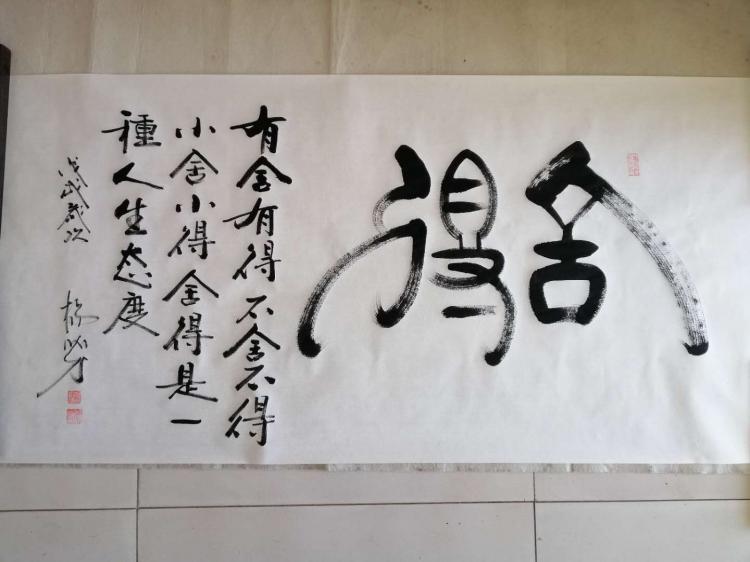 舍得
有舍有得不舍不得
小舍小得舍得是一
種人生态度
戊戌歲次